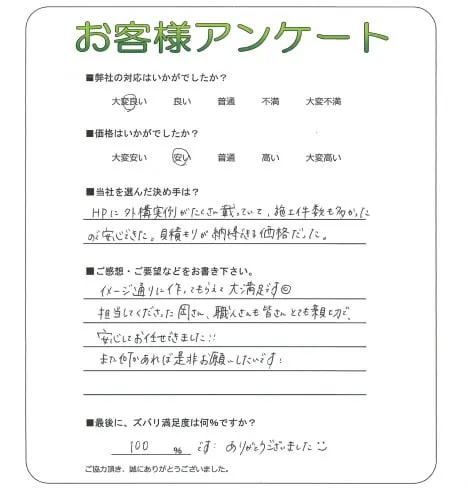 お客様アンケート
■弊社の対応はいかがでしたか？
大変良い 良い 普通 不満 大変不満
■価格はいかがでしたか？
大変安い 安い 普通 高い 大変高い
■当社を選んだ決め手は？
HPに外構実例がたくさん載っていて、施工件数も多かった
ので安心できた。見積もりが納得できる価格だった。
■ご感想・ご要望などをお書き下さい。
イメージ通りに作ってもらえて大満足です☺
担当してくださった岡さん、職人さんも皆さんとても親切で、
安心してお任せできました!!
また何かあれば是非お願いしたいです:
■最後に、ズバリ満足度は何%ですか？
100 % です: ありがとうございました☺
ご協力頂き、誠にありがとうございました。